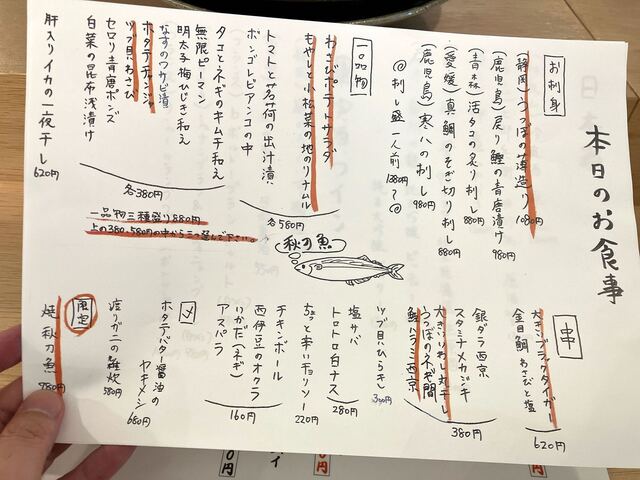 本日のお食事
お刺身
(静岡)うつぼの藁造り 1080円
(鹿児島)戻り鰹の青唐漬け 980円
(青森)活タコの炙り刺し 880円
(愛媛)真鯛のそぎ切り刺し 880円
(鹿児島)寒八の刺し 980円
◎刺し盛一人前 1380円〜◎
一品物
わさびポテトサラダ
もやしと小松菜の地のりナムル
トマトと茗荷の出汁漬け
ボンゴレビアンコの中
各580円
タコとネギのキムチ和え
無限ピーマン
明太子梅ひじき和え
なすのワサビ漬
ホタテチャンジャ
ツブ貝わさび
セロリ青唐ポンズ
白菜の昆布浅漬け
各380円
肝入りイカの一夜干し 620円
一品物三種盛り880円
上の380,580円の中から三つ選んで下さい。
秋刀魚
串
大きいブラックタイガー
金目鯛わさびと塩
620円
銀ダラ西京
スタミナメカジキ
大きいいわし丸干し
うつぼのネギ間
鮭ハラミ西京
380円
ツブ貝(ひらき) 300円
塩サバ
トロトロ白ナス
280円
ちょっと辛いチョリソー 220円
チキンボール
西伊豆のオクラ
いかだ(ネギ)
アスパラ
160円
〆
ホタテバター醤油のヤキメシ 680円
渡りガニの雑炊 580円
限定
焼秋刀魚 980円